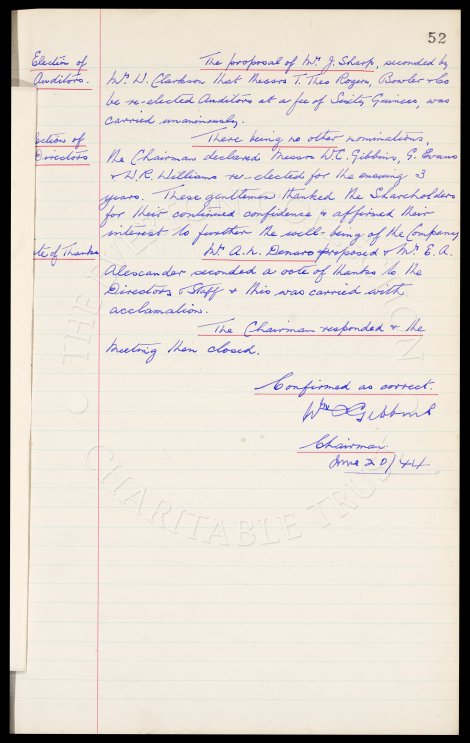 52
Election of
Auditors.
The proposal of Mr. J. Sharp, seconded by
Mr. W. Clarkson that Messrs T. Theo Rogers, Bowler & Co
be re-elected Auditors at a fee of Sixty Guineas, was
carried unanimously.
lection of
Directors
There being no other nominations,
the Chairman declared Messrs W.C. Gibbins, G. Evans
& W.R. Williams re-elected for the ensuing 3
years. These gentlemen thanked the Shareholders
for their continued confidence & affirmed their
interest to further the well-being of the Company
te of Thanks
Mr. A.N. Denaro proposed & Mr. E.A.
Alescander seconded a vote of thanks to the
Directors & Staff & this was carried with
acclamation.
The Chairman responded & the
meeting then closed.
Confirmed as correct.
Wm C Gibbins
Chairman.
June 20/44
CHARITABLE TRUST